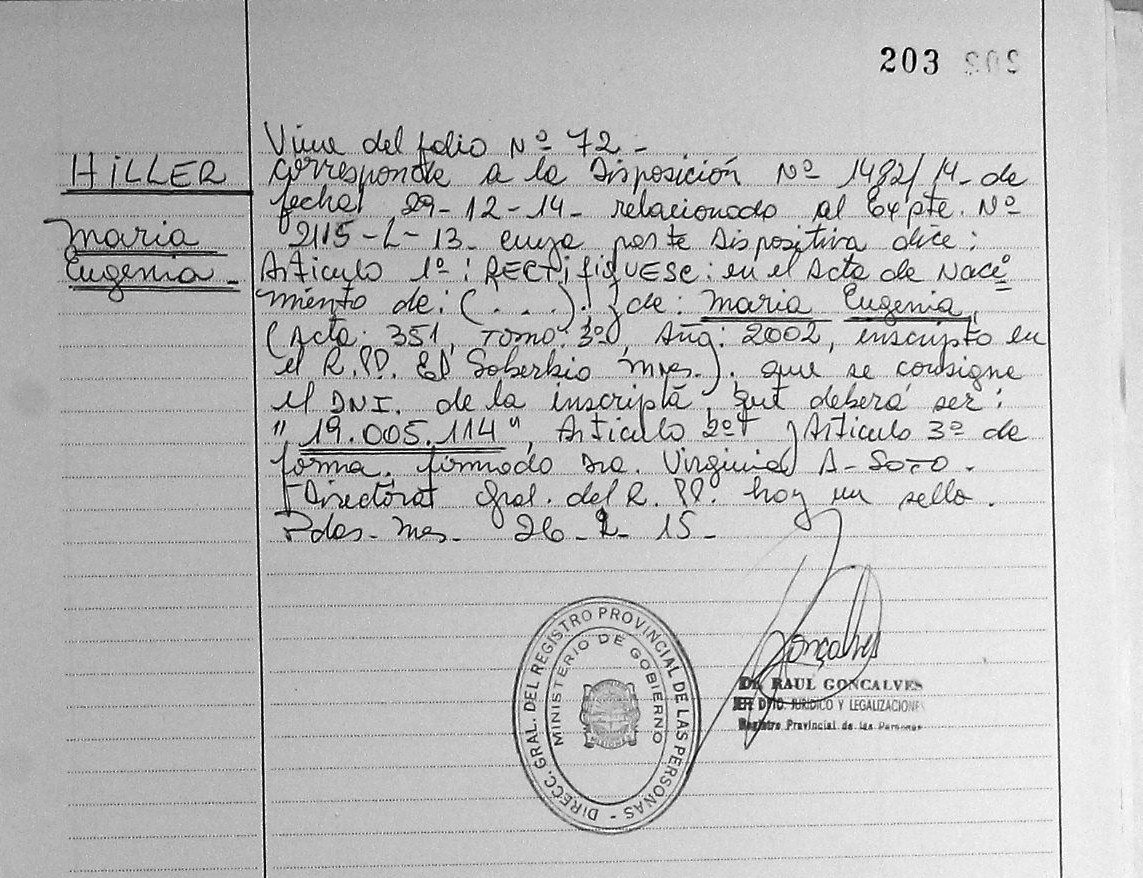 203
HiLLER
Maria
Eugenia
Viene del folio Nº 72 -
Corresponde a la Disposición Nº 1482/14 - de
fecha 29-12-14 - relacionado al Expte. Nº
2115-L-13 - cuya parte Dispositiva dice:
Articulo 1º: RECTIFIQUESE: en el Acta de Naci
miento de: (...) de: Maria Eugenia,
(Acta: 351, Tomo: 3º, Año: 2002, inscripto en
el R.PP. El Soberbio Mnes.). que se consigne
el DNI. de la inscripta que deberá ser:
"19.005.114", Articulo 2º Articulo 3º de
forma. firmado Dra. Virginia A. Soto.
Directora Gral. del R.PP. hay un sello.
Pdas - Mes - 26 - 2 - 15 -
DIRECC. GRAL. DEL REGISTRO PROVINCIAL DE LAS PERSONAS -
MINISTERIO DE GOBIERNO
MISIONES
Gonçalves
Dr. RAUL GONCALVES
JEFE DPTO. JURIDICO Y LEGALIZACIONES
Registro Provincial de las Personas